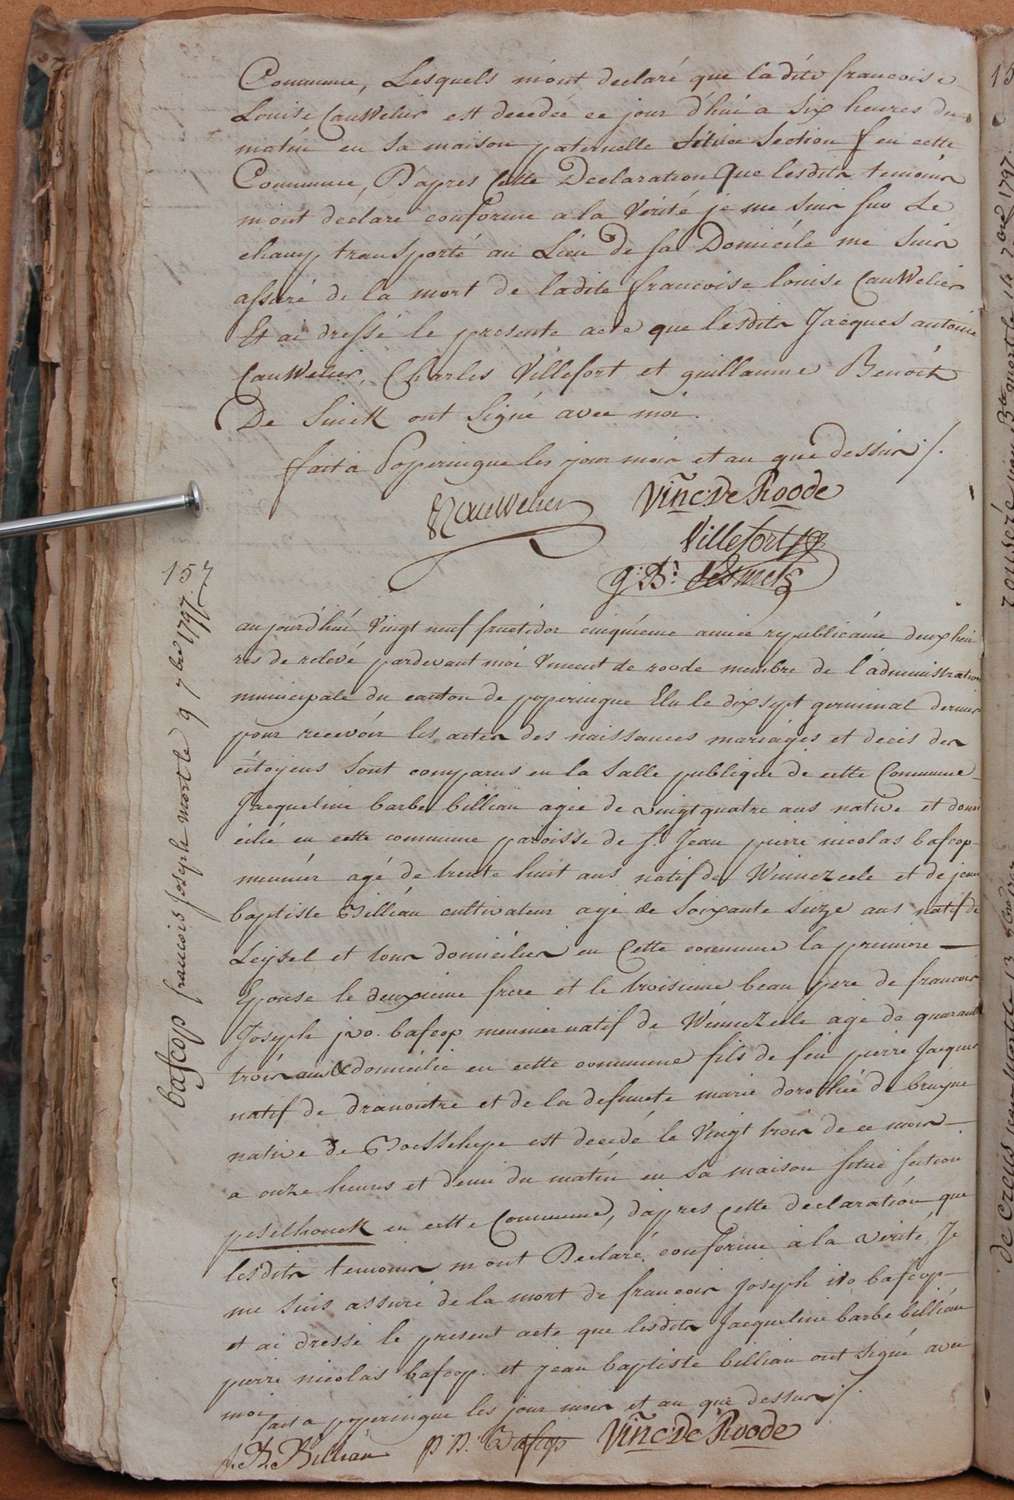 Commune, Lesquels m'ont declaré que ladite francoise
Louise CauWelier est decedée ce jour d'hui a six heures du
matin en sa maison paternelle sitúee section f en cette
Commune, D'apres cette Declaration que lesdits temoins
m'ont declaré conforme a la verité je me suis sur le
champ transporté au Lieu de sa Domicile me suis
assuré de la mort de ladite francoise louise CauWelier
Et ai dressé le presente acte que lesdits Jacques antoine
CauWelier, Charles Villefort et guillaume Benoit
De Smek ont signé avec moi.
fait a Poperingue les jour mois et an que dessus /.
CauWelier VincDe Roode
Villefort
g: B: deSmek
157
bascop francois Joseph mort le 9 7bre 1797
aujourd'hui Vingt neuf fructidor cinquieme année republicaine deux heu-
res de relevé pardevant moi Vincent de roode membre de l'administration
municipale du canton de poperingue Elu le dix sept germinal dernier
pour recevoir les actes des naissances mariages et decés des
citoyens sont comparus en la salle publique de cette Commune
Jacqueline barbe billiau agée de vingtquatre ans native et domi
cilié en cette commune paroisse de s. Jean pierre nicolas bascop
meunier agé de trente huit ans natif de Winnezeele et de jean
baptiste Billiau cultivateur agé de soixante seize ans natif de
Leysel et tous domiciliés en cette commune la premiere
Epouse le deuxieme frere et le troisieme beau pere de francois
Joseph ivo bascop meunier natif de Winnezeele agé de quarante
trois ans & domicilié en cette commune fils de feu pierre Jacques
natif de dranoutre et de la defuncte marie dorothée de bruyne
native de Boesschepe est decedé le Vingt trois de ce mois
a onze heures et demi du matin en sa maison situé section
peselhouck en cette Commune, d'apres cette declaration que
lesdits temoins m'ont Declaré conforme a la verité, Je
me suis assuré de la mort de francois Joseph ivo bascop
et ai dressé le present acte que lesdits Jacqueline barbe billiau
pierre nicolas bascop et jean baptiste billiau ont signé avec
moi
fait a poperingue les jour mois et an que dessus /.
J. B. Billiau p: n: Bascop VincDe Roode